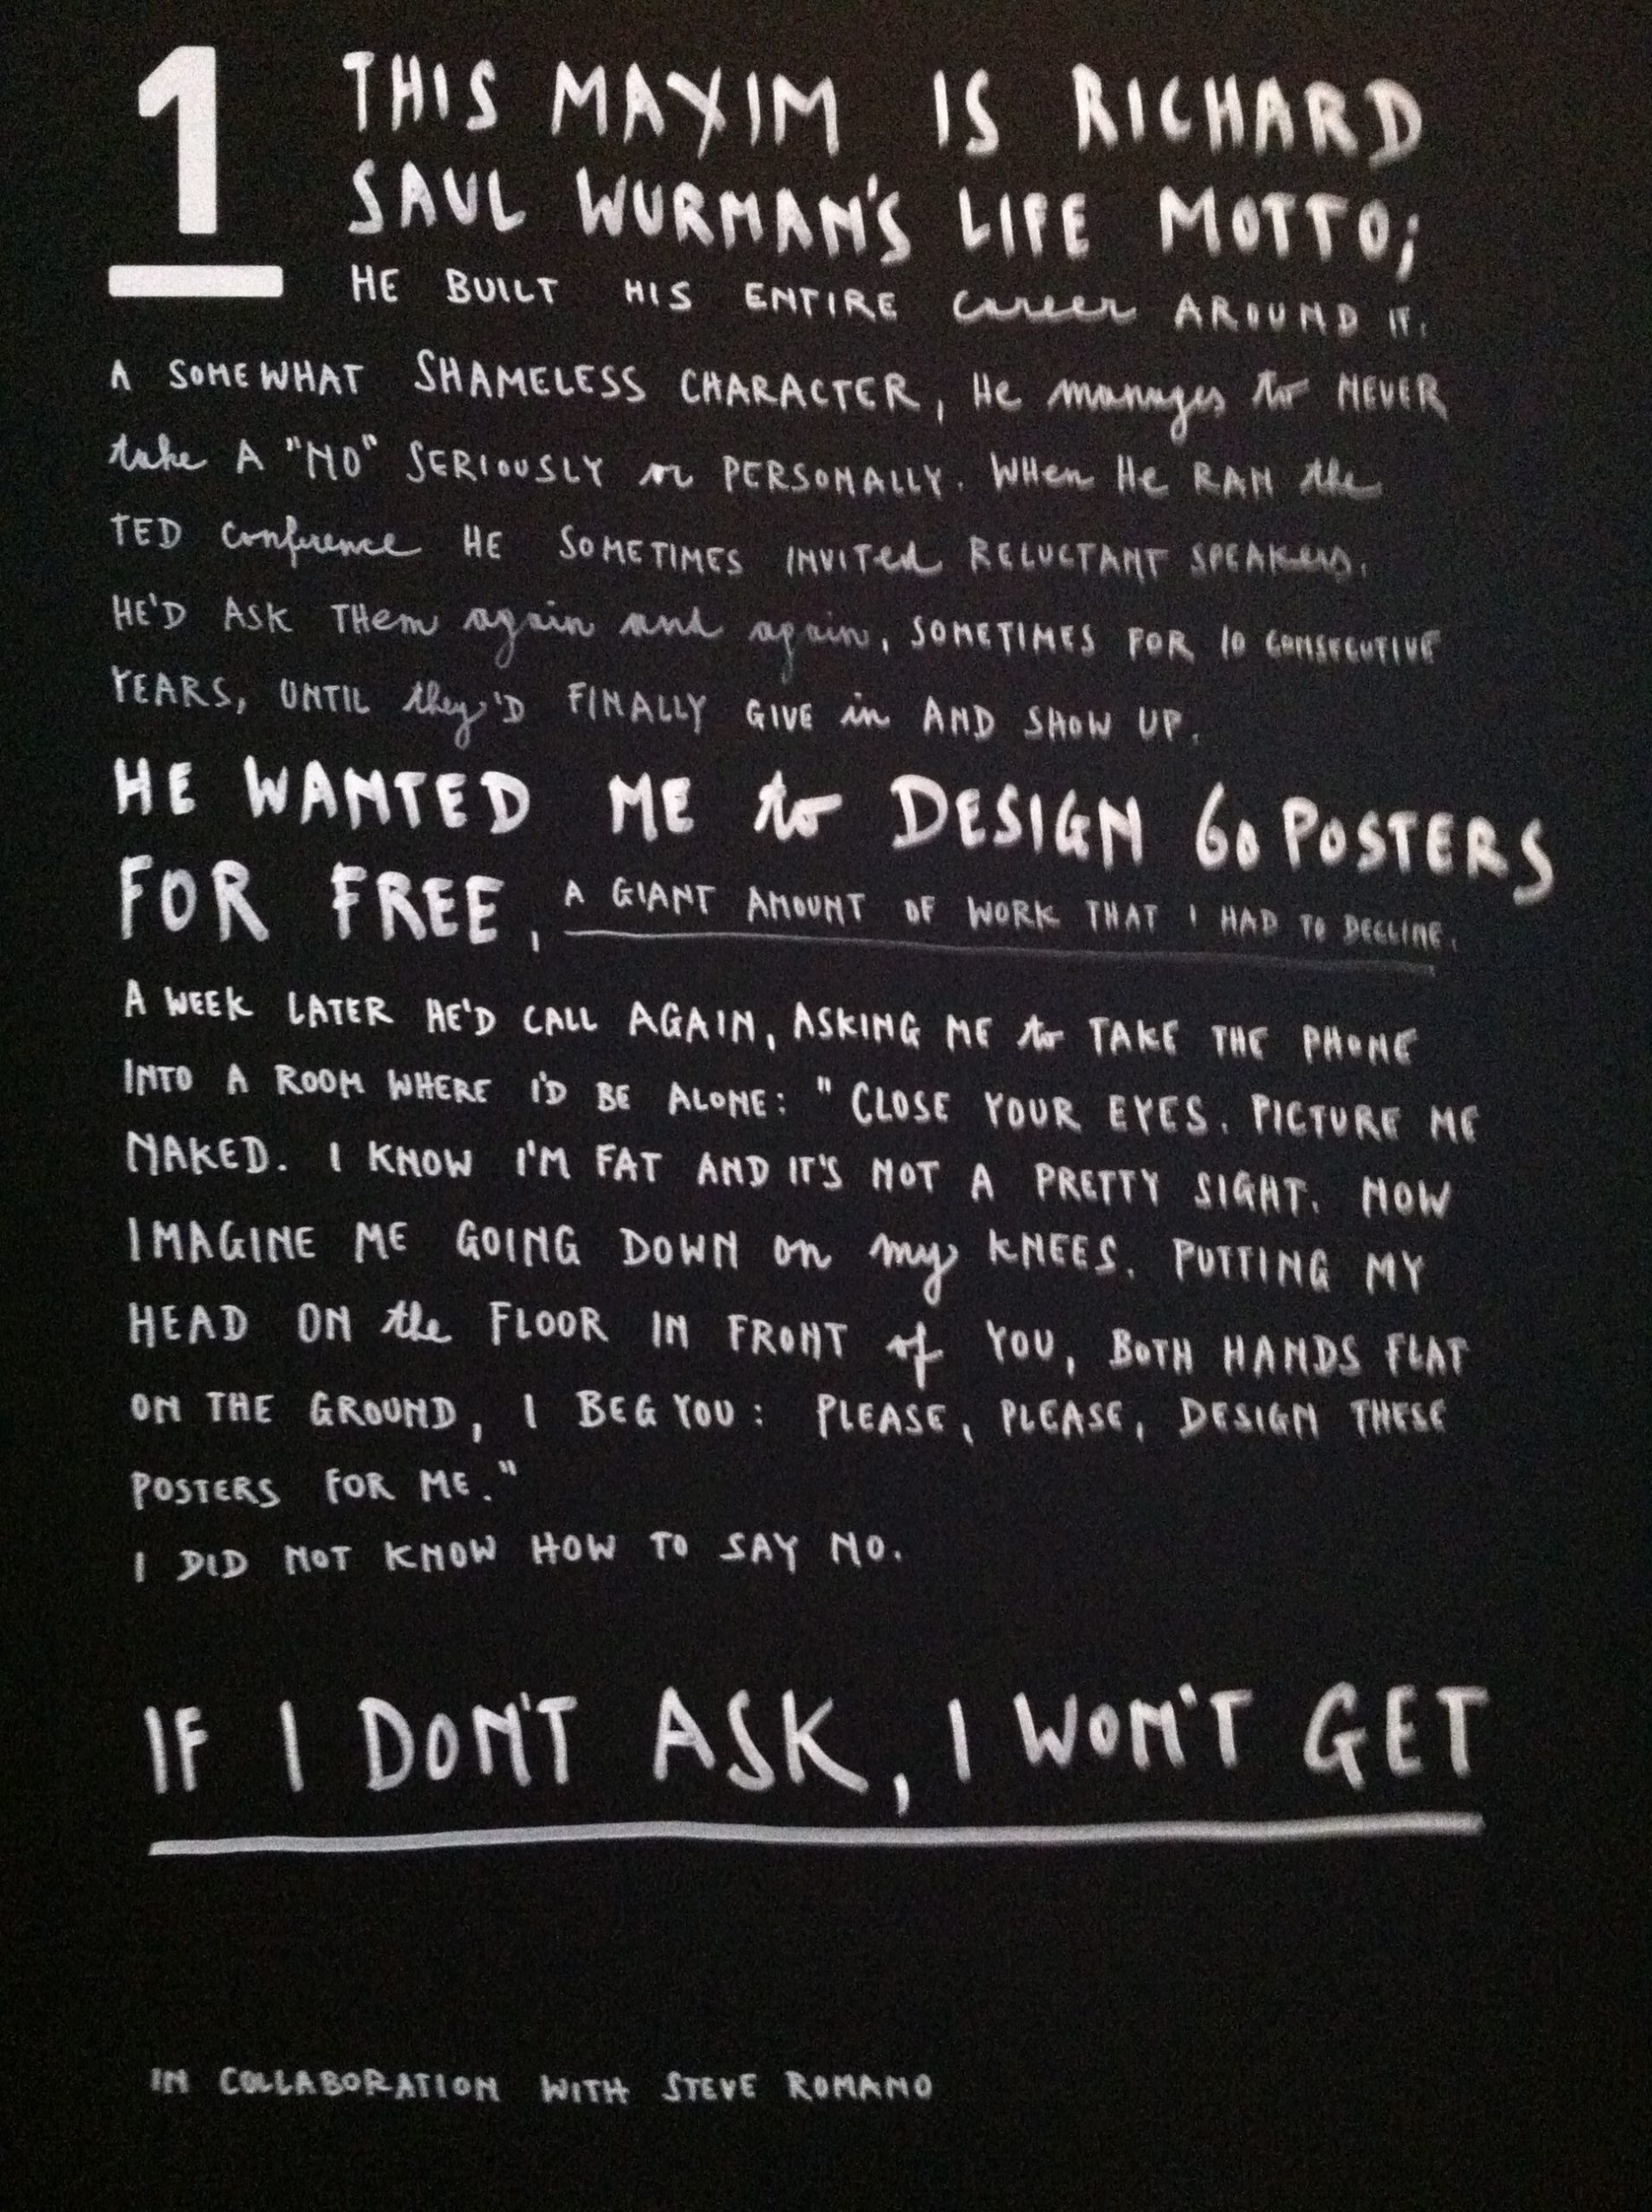 1
THIS MAXIM IS RICHARD
SAUL WURMAN'S LIFE MOTTO;
HE BUILT HIS ENTIRE career AROUND IT.
A SOMEWHAT SHAMELESS CHARACTER, He manages to NEVER
take A "NO" SERIOUSLY or PERSONALLY. WHen He RAN the
TED conference HE SOMETIMES INVITed RELUCTANT SPEAKers.
HE'D ASK THem again and again, SOMETIMES FOR 10 CONSECUTIVE
YEARS, UNTIL they'D FINALLY GIVE in AND SHOW UP.
HE WANTED ME to DESIGN 60 POSTERS
FOR FREE, A GIANT AMOUNT OF WORK THAT I HAD TO DECLINE.
A WEEK LATER HE'D CALL AGAIN, ASKING ME to TAKE THE PHONE
INTO A ROOM WHERE I'D BE ALONE: "CLOSE YOUR EYES. PICTURE ME
NAKED. I KNOW I'M FAT AND IT'S NOT A PRETTY SIGHT. NOW
IMAGINE ME GOING DOWN on my KNEES. PUTTING MY
HEAD ON the FLOOR IN FRONT of YOU, BOTH HANDS FLAT
ON THE GROUND, I BEG YOU: PLEASE, PLEASE, DESIGN THESE
POSTERS FOR ME."
I DID NOT KNOW HOW TO SAY NO.
IF I DON'T ASK, I WON'T GET
IN COLLABORATION WITH STEVE ROMANO